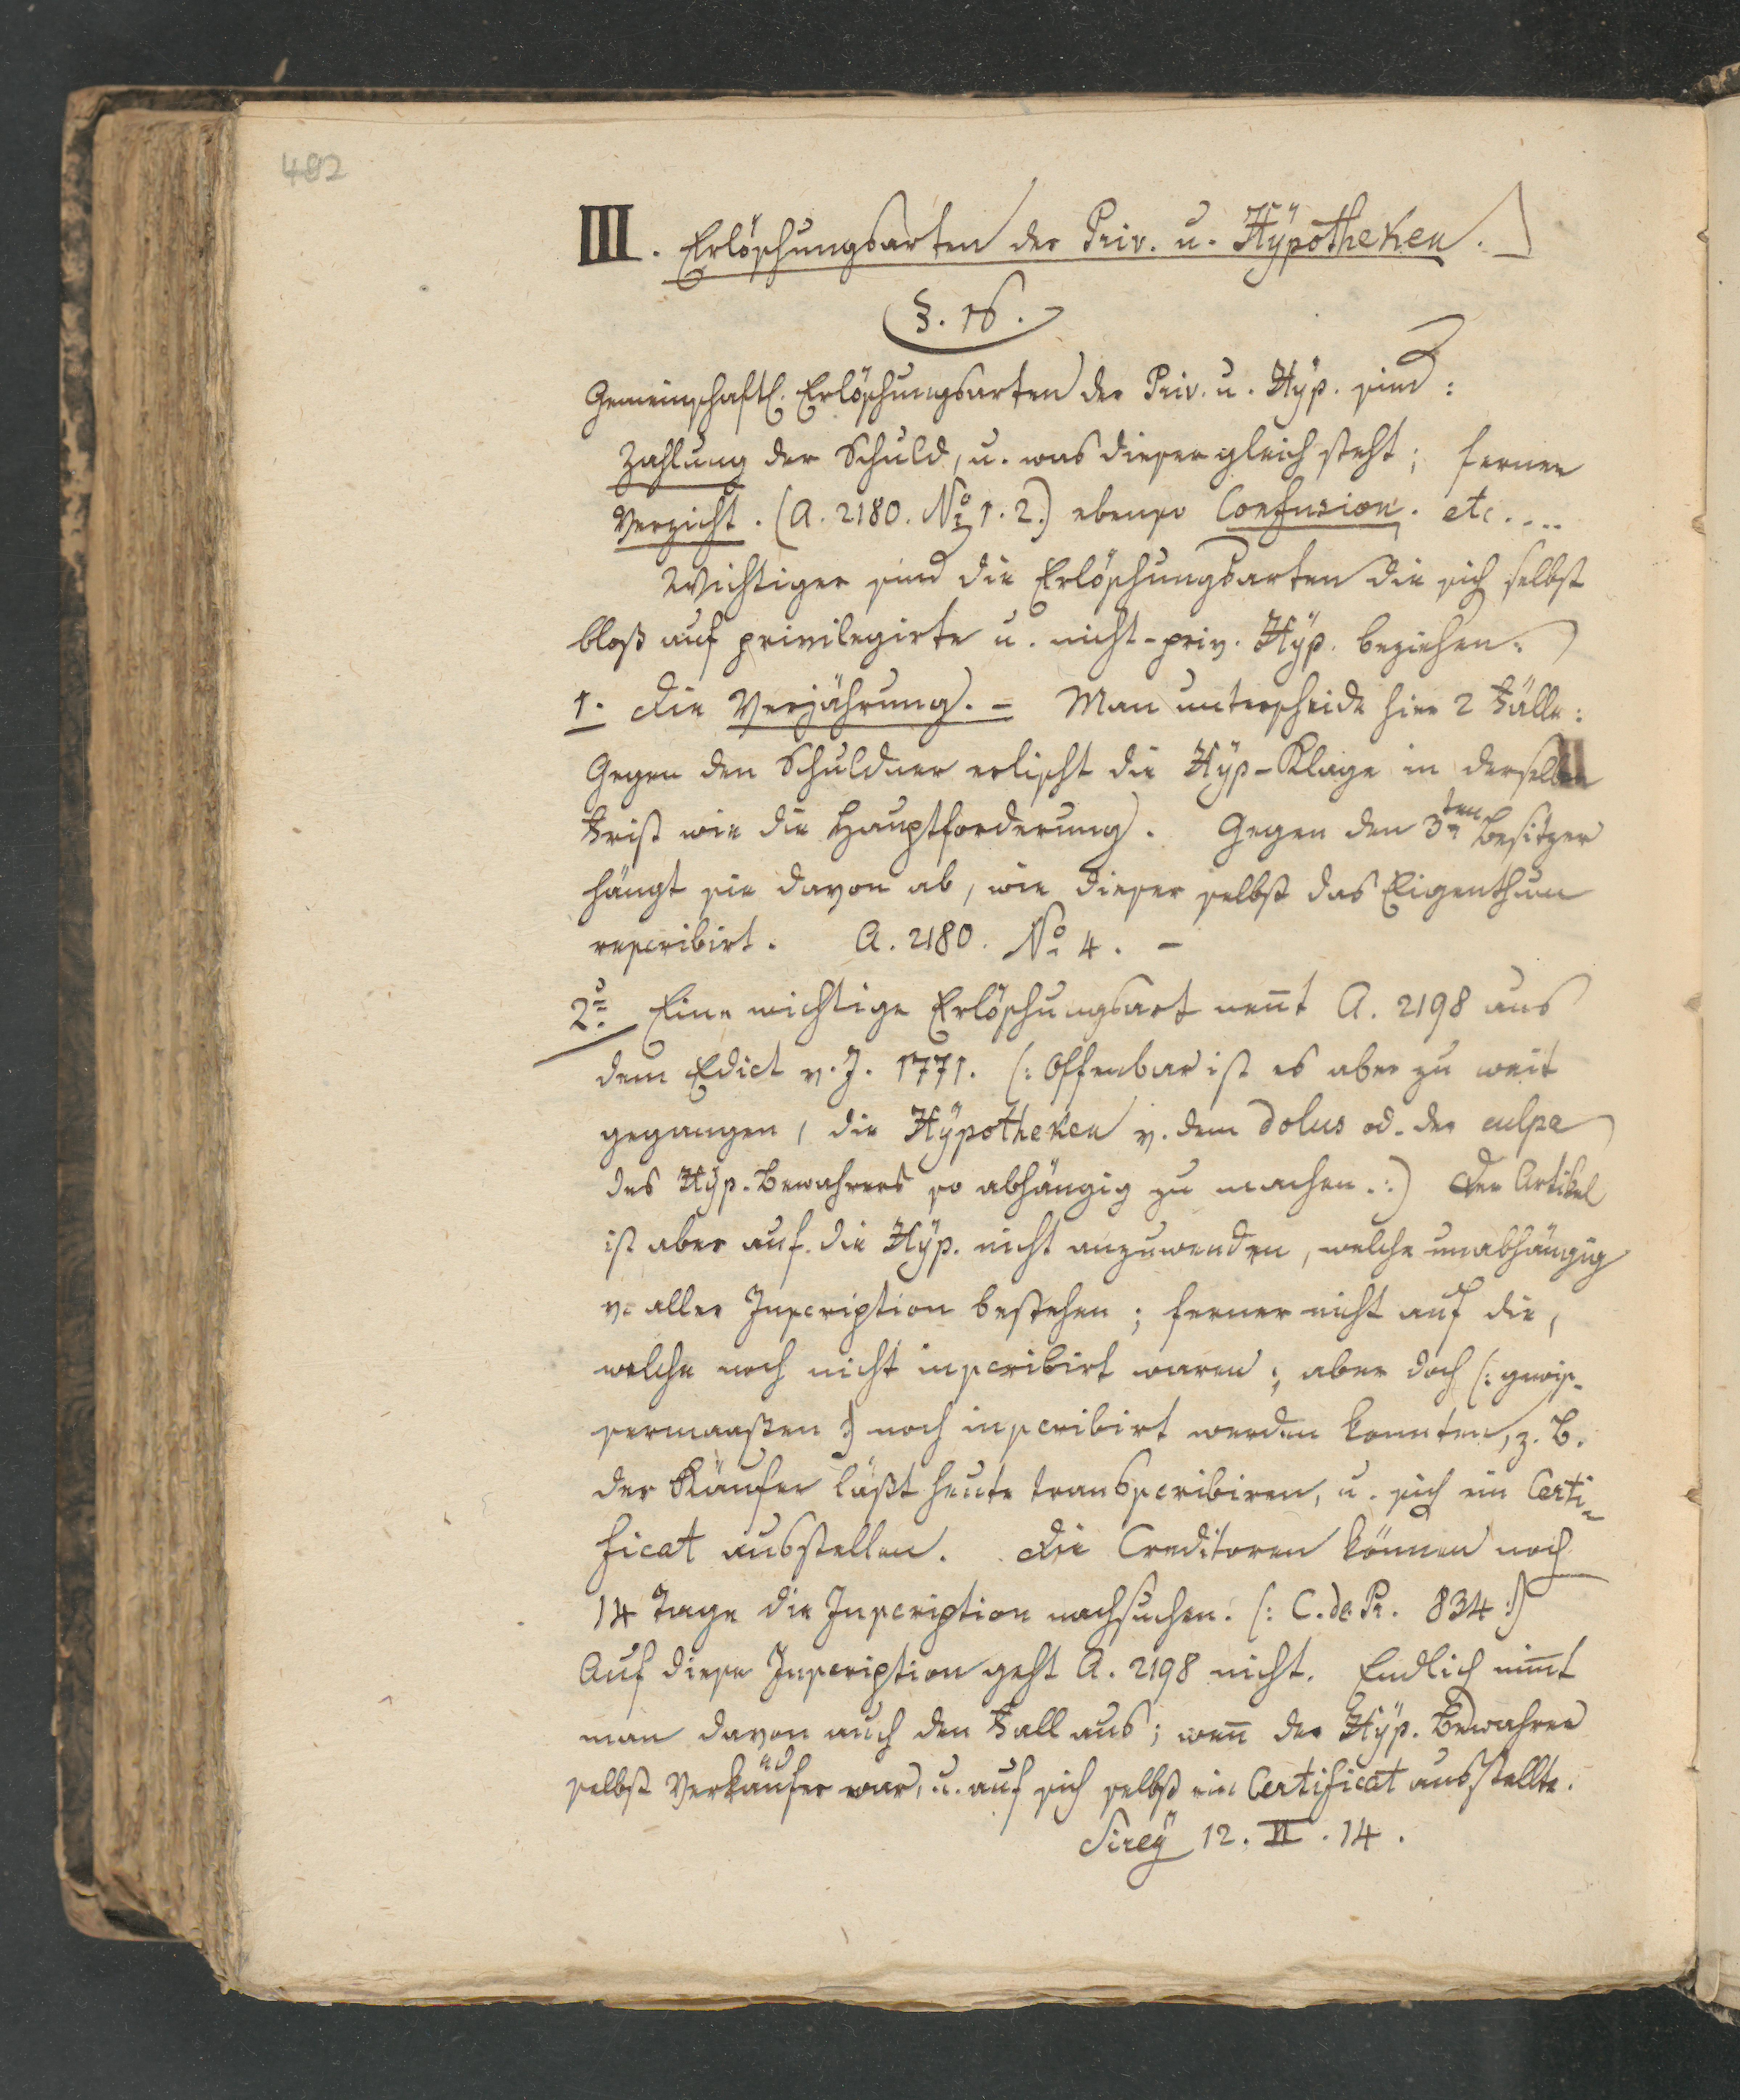 482
III. Erlöschungsarten der Priv. u. Hÿpotheken.
§. 16.
Gemeinschaftl. Erlöschungsarten der Priv. u. Hÿp. sind:
Zahlung der Schuld, u. was dieser gleich steht; ferner
Verzicht. (A. 2180. No 1. 2.) ebenso Confusion. etc....
Wichtiger sind die Erlöschungsarten die sich selbst
bloß auf privilegirte u. nicht-priv. Hÿp. beziehen.
1. Die Verjährung. - Man unterscheide hier 2 Fälle:
Gegen den Schuldner erlischt die Hÿp-Klage in derselben
Frist wie die Hauptforderung. Gegen den 3ten Besitzer
hängt sie davon ab, wie dieser selbst das Eigenthum
rescribirt. A. 2180. No 4. -
2. Eine wichtige Erlöschungsart nennt A. 2198 aus
dem Edict v. J. 1771. (: Offenbar ist es aber zu weit
gegangen, die Hÿpotheken v. dem dolus od. der culpa
des Hÿp. Bewahrers so abhängig zu machen. :) Der Artikel
ist aber auf die Hÿp. nicht anzuwenden, welche unabhängig
v. aller Inscription bestehen; ferner nicht auf die,
welche noch nicht inscribirt waren; aber doch (: gewis-
sermaaßen :) noch inscribirt werden konnten, z. B.
der Käufer läßt heute transscribiren, u. sich ein Certi-
ficat ausstellen. Die Creditoren können noch
14 Tage die Inscription nachsuchen. (: C. de Pr. 834 :)
Auf diese Inscription geht A. 2198 nicht. Endlich nim̅t
man davon auch den Fall aus; wen̅ der Hÿp. Bewahrer
selbst Verkäufer war, u. auf sich selbst ein Certificat ausstellte.
Sireÿ 12. II. 14.